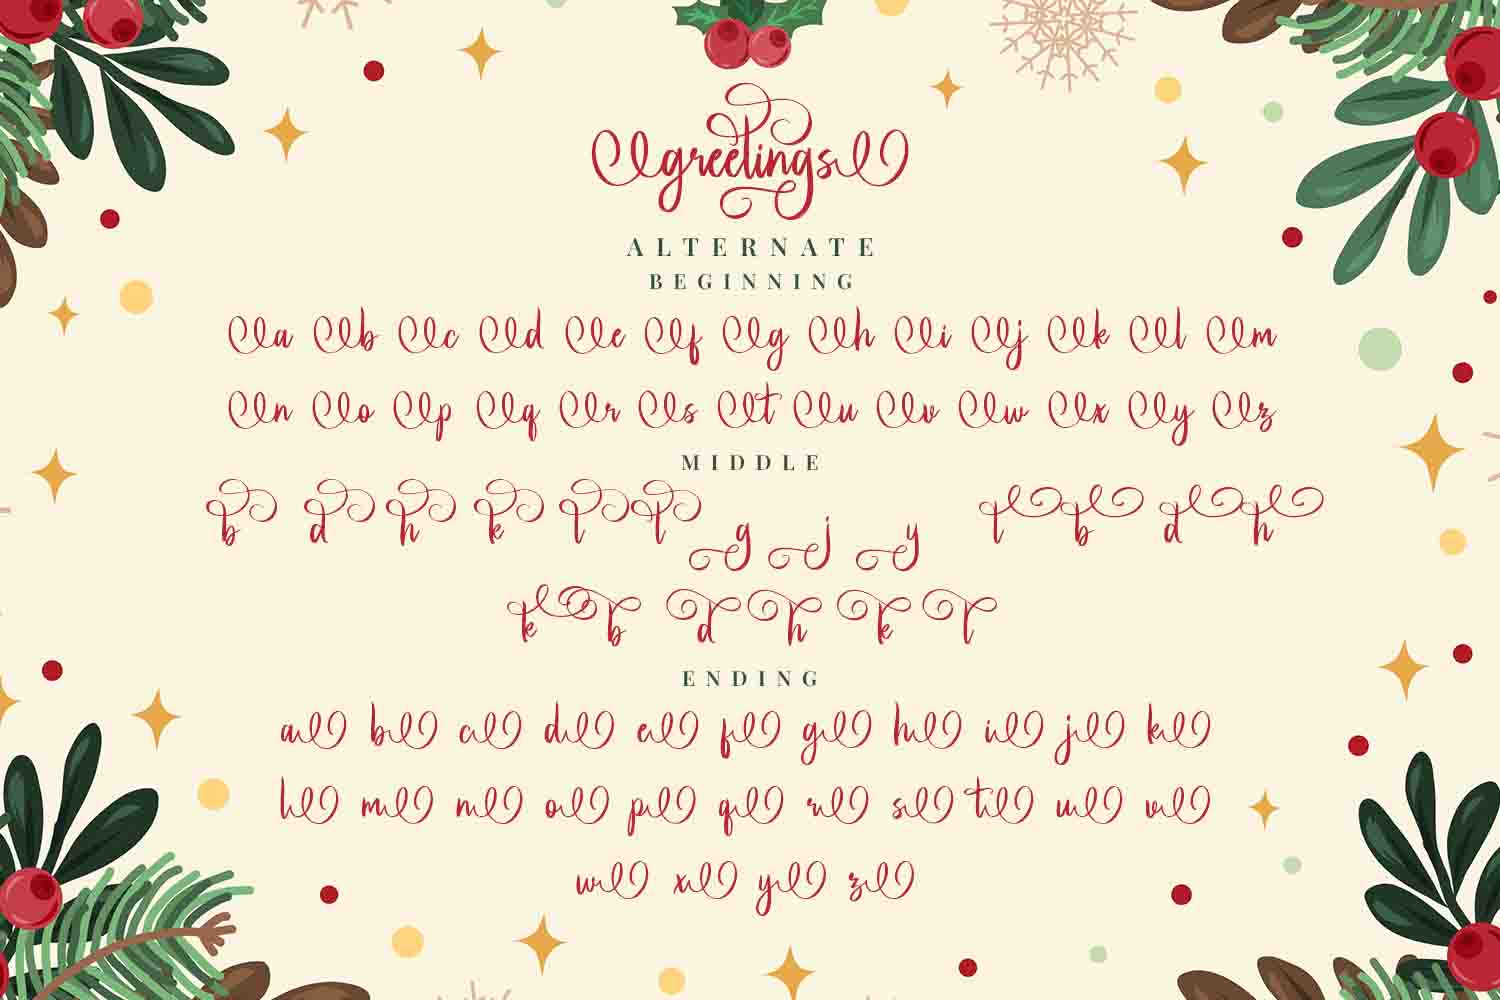 greetings
ALTERNATE
BEGINNING
a b c d e f g h i j k l m
n o p q r s t u v w x y z
MIDDLE
b d h k l t g j y l b d h
k b d h k l
ENDING
a b c d e f g h i j k
l m n o p q r s t u v
w x y z